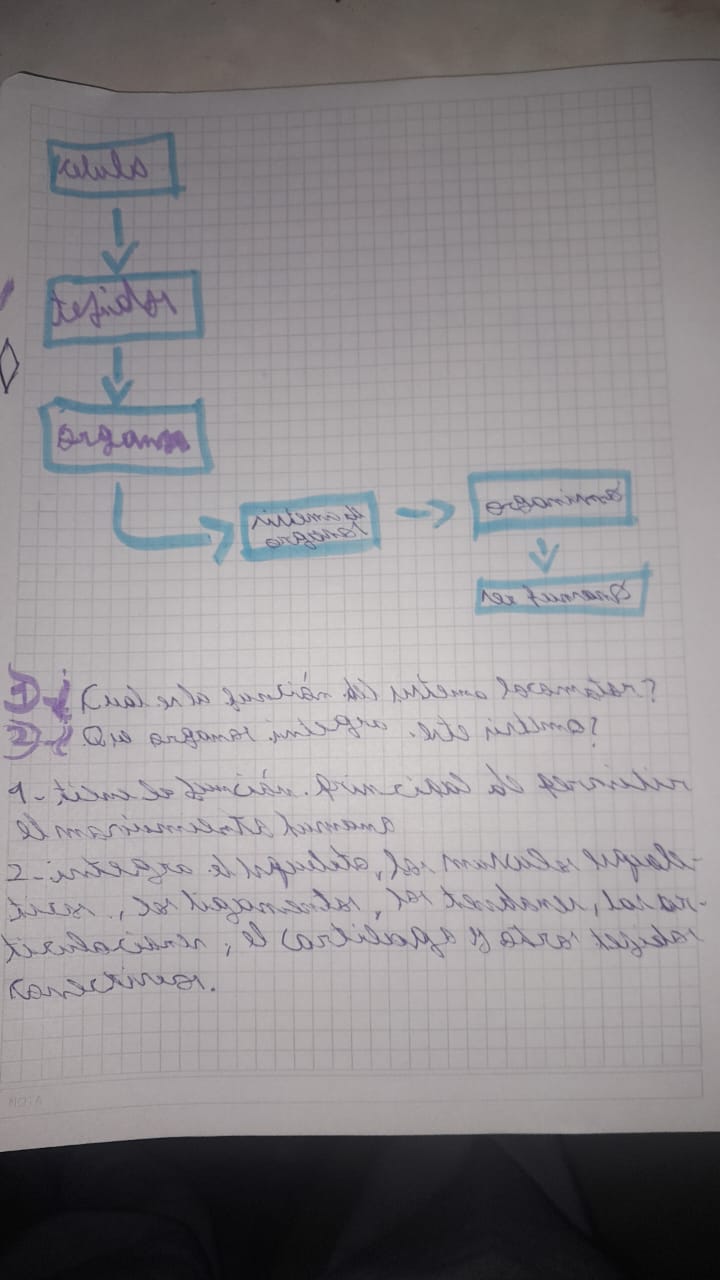 celula
tejidos
órganos
sistema de
organos
organismo
ser humano
1) ¿Cual es la función del sistema locomotor?
2) ¿Que organos integra este sistema?
1- tiene la función principal de permitir
el movimiento humano
2- integra el esqueleto, los musculos esquele-
ticos, los ligamentos, los tendones, las ar-
ticulaciones, el cartilago y otros tejidos
conectivos.
NOTA